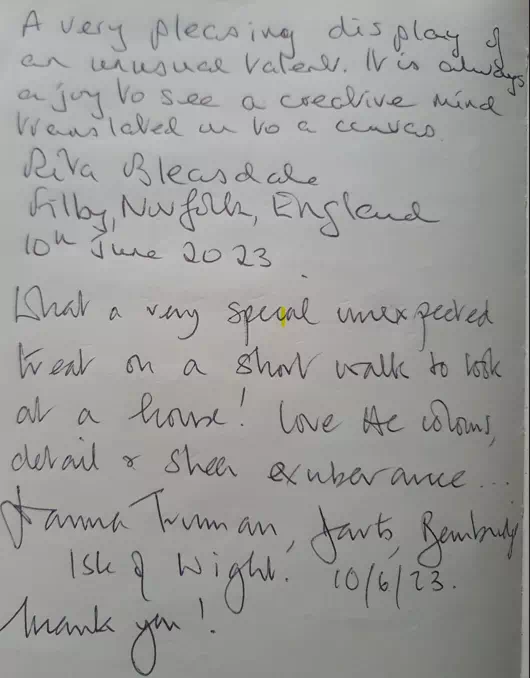 A very pleasing display of
an unusual talent. It is always
a joy to see a creative mind
translated on to a canvas.
Rita Bleasdale
Filby, Norfolk, England
10th June 2023
What a very special unexpected
treat on a short walk to look
at a house! Love the colours,
detail & sheer exuberance...
Truman,
Isle of Wight. 10/6/23.
Thank you!